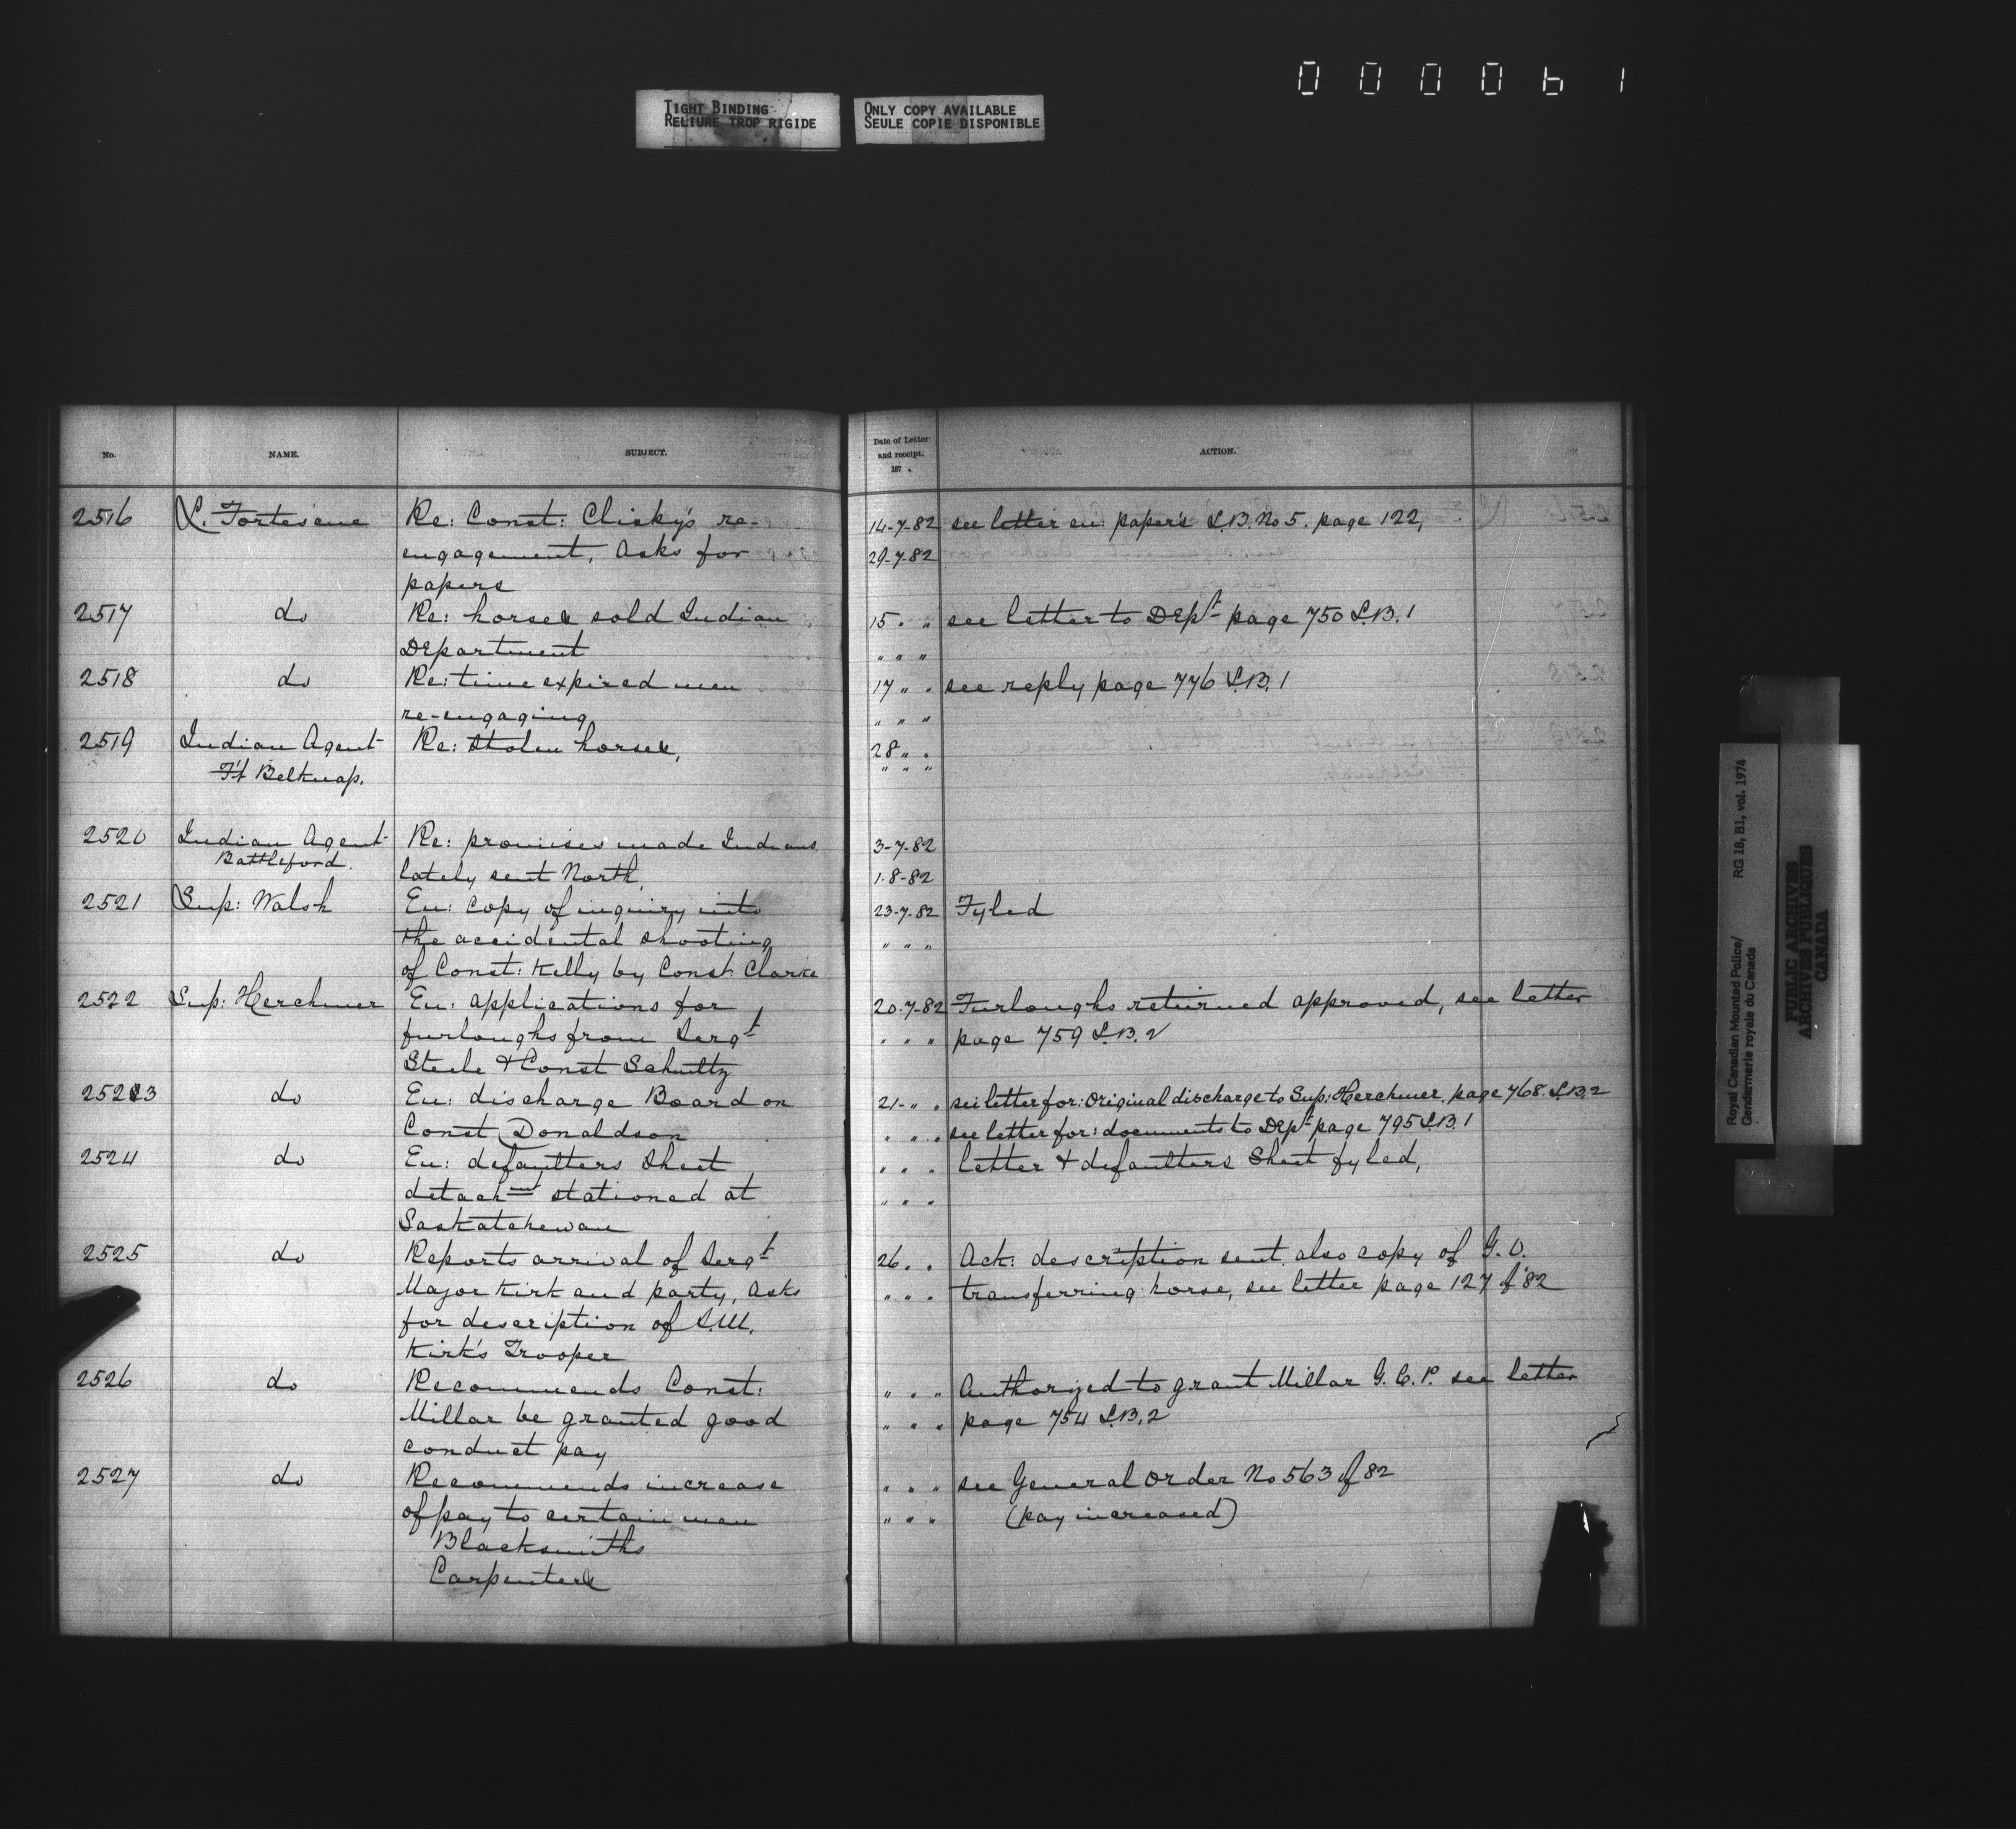 0 0 0 0 6 1
TIGHT BINDING
RELIURE TROP RIGIDE
ONLY COPY AVAILABLE
SEULE COPIE DISPONIBLE
No. NAME. SUBJECT. Date of Letter and receipt. 187 . ACTION.
2516 L. Fortescue Re: Const: Clisky's re- 14-7-82 see letter en: papers L.B. No 5. page 122,
engagement, Asks for 29-7-82
papers
2517 do Re: horses sold Indian 15 " " see letter to Dept page 750 L.B. 1
Department " " "
2518 do Re: time expired men 17 " " see reply page 776 L.B. 1
re-engaging " " "
2519 Indian Agent Re: Stolen horses, 28 " "
Ft Belknap. " " "
2520 Indian Agent Re: promises made Indians 3-7-82
Battleford. lately sent North, 1-8-82
2521 Sup: Walsh En: copy of inquiry into 23-7-82 Fyled
the accidental shooting " " "
of Const: Kelly by Const Clarke
2522 Sup: Herchmer En: applications for 20-7-82 Furloughs returned approved, see letter
furloughs from Sergt " " " page 759 L.B. 2
Steele & Const Schultz
2523 do En: discharge Board on 21- " " see letter for: Original discharge to Sup: Herchmer, page 768. L.B. 2
Const Donaldson " " " see letter for: documents to Dept page 795 L.B. 1
2524 do En: defaulters Sheet " " " letter & defaulters Sheet fyled,
detachmt stationed at " " "
Saskatchewan
2525 do Reports arrival of Sergt 26 " " Ack: description sent, also copy of G.O.
Major Kirk and party, Asks " " " transferring horse, see letter page 127 of 82
for description of S.M.
Kirk's Trooper
2526 do Recommends Const: " " " Authorized to grant Millar G.C.P. see letter
Millar be granted good " " " page 754 L.B. 2
conduct pay
2527 do Recommends increase " " " see General Order No 563 of 82
of pay to certain men " " " (pay increased)
Blacksmiths
Carpenters
Royal Canadian Mounted Police/ RG 18, B1, vol. 1974
Gendarmerie royale du Canada
PUBLIC ARCHIVES
ARCHIVES PUBLIQUES
CANADA